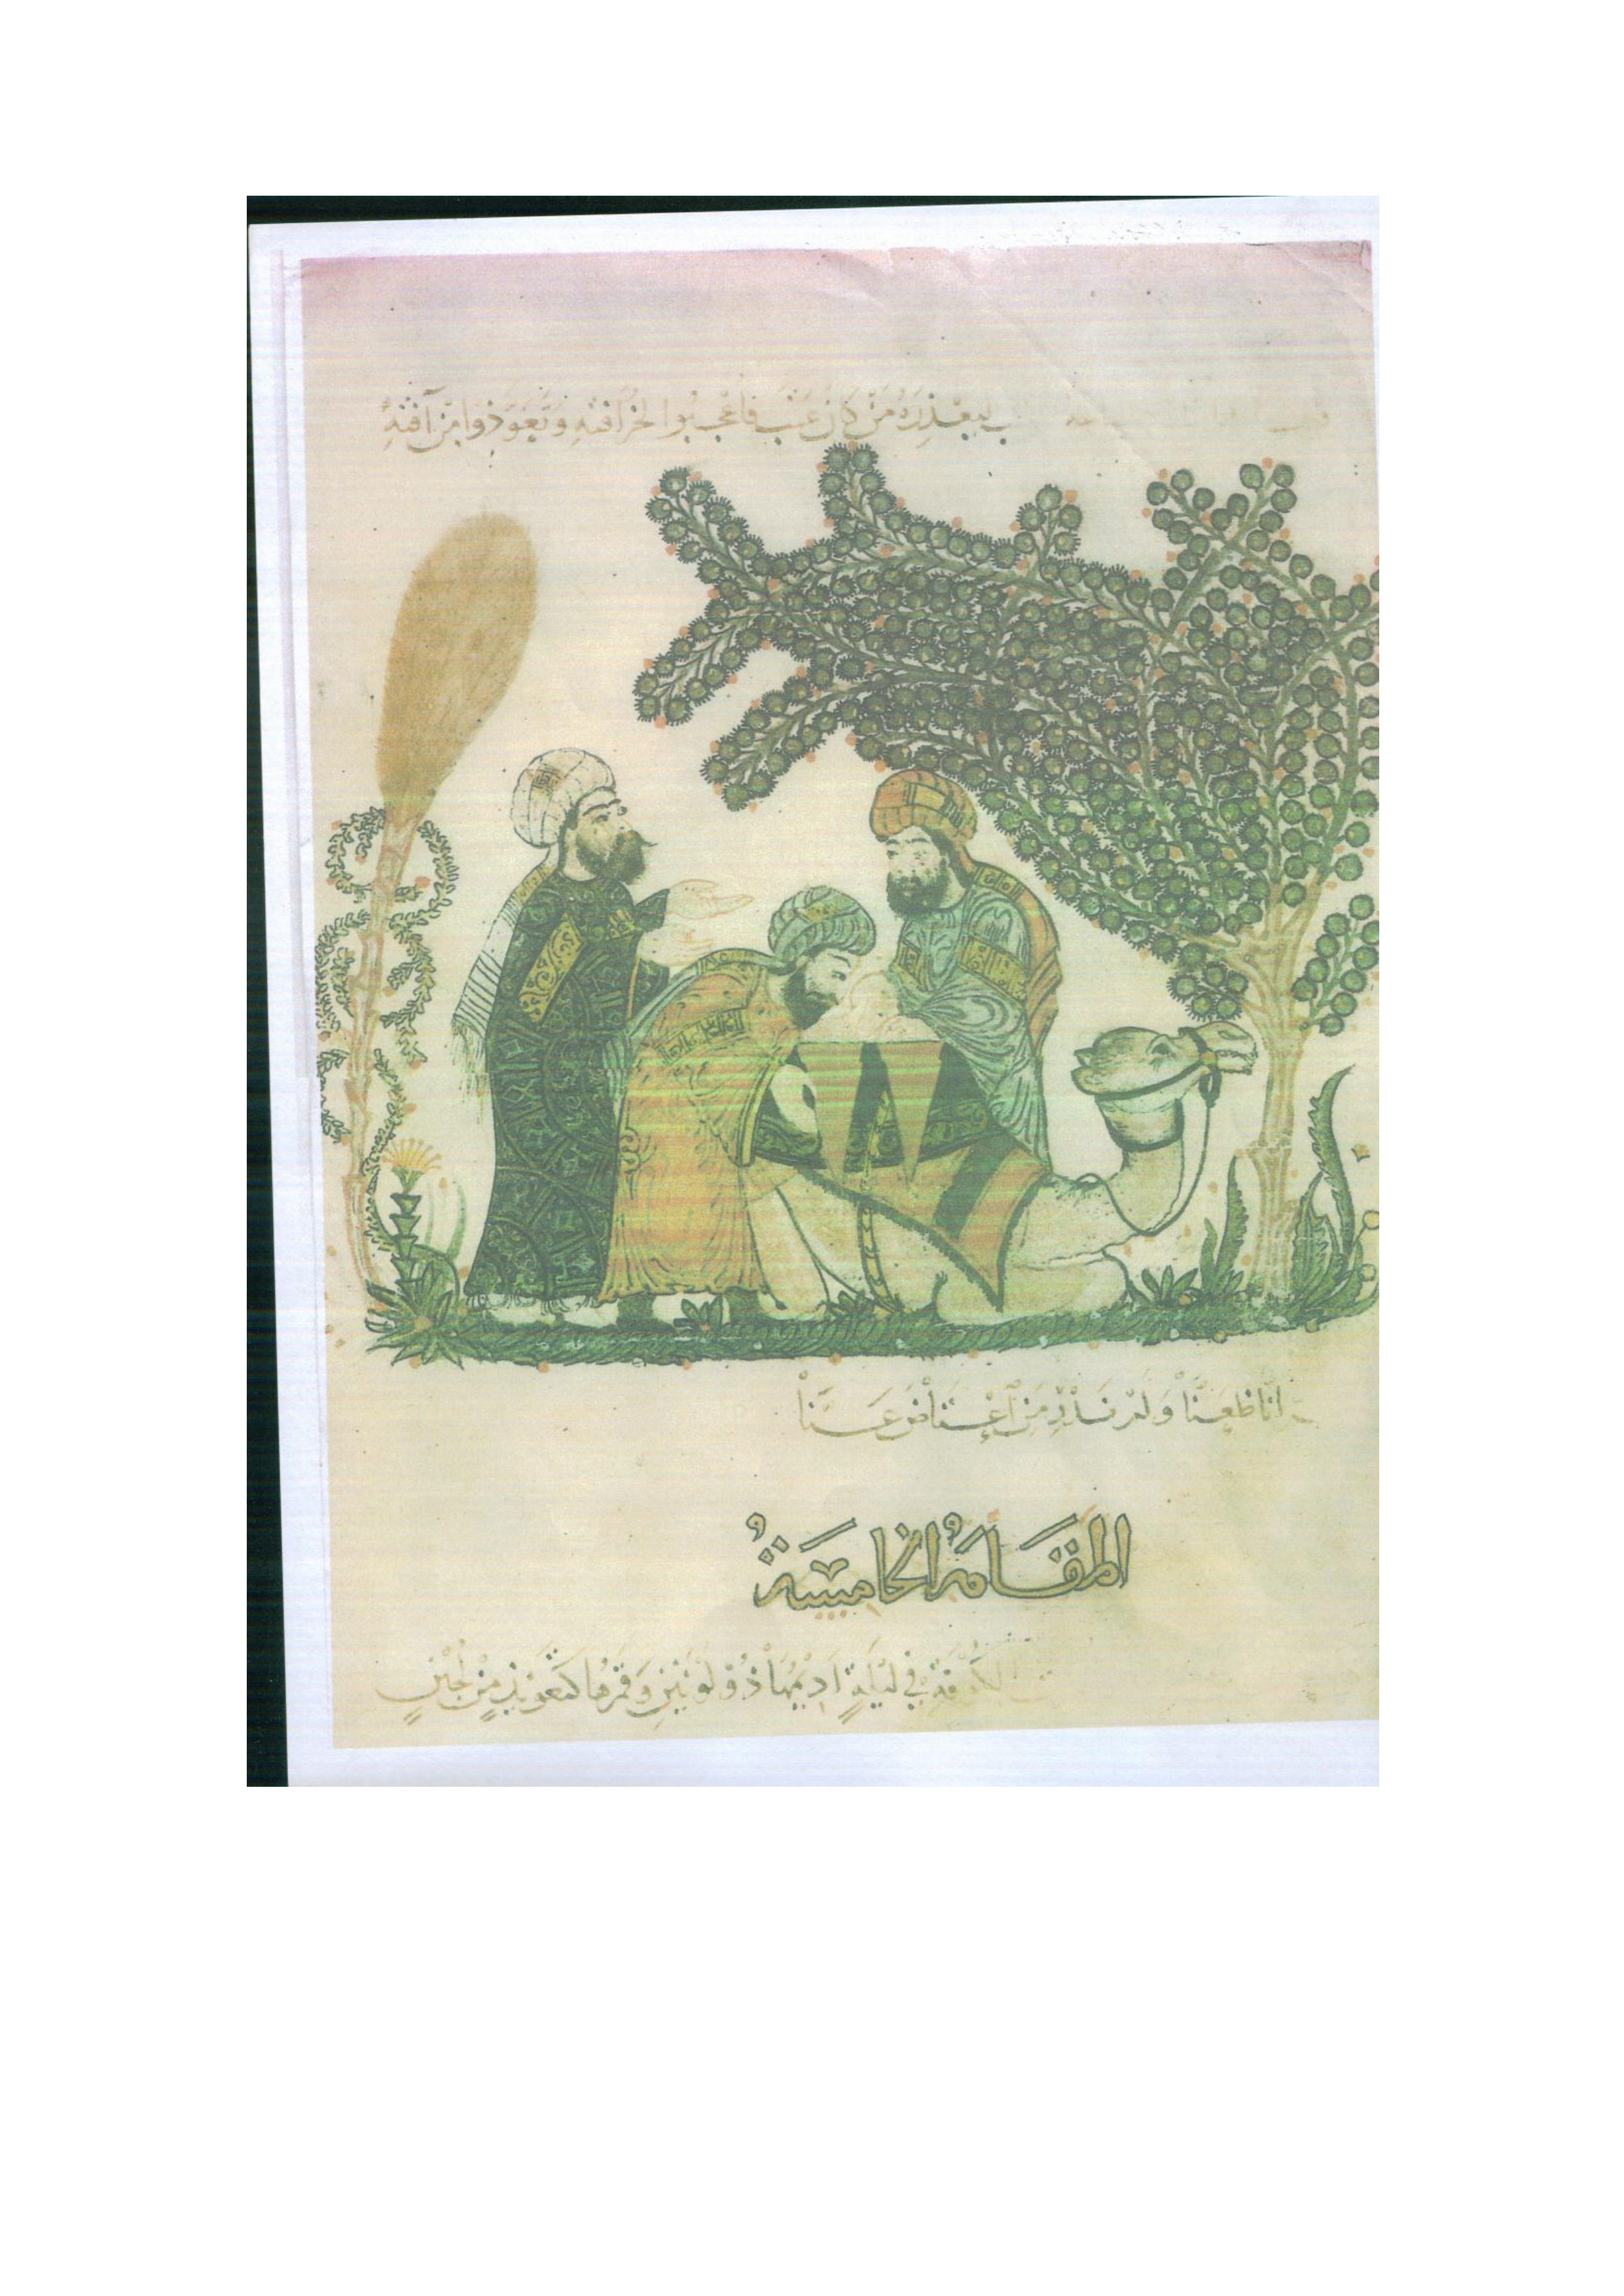 ليعذره من كان عتب فاعجبوا لخرافته وتعوذوا من آفته
انا ظعنا ولم ندر من اعتاض عنا
المقامة الخامسة
الكوفة في ليلة اديمها ذو لونين وقمرها كتعويذ من لجين